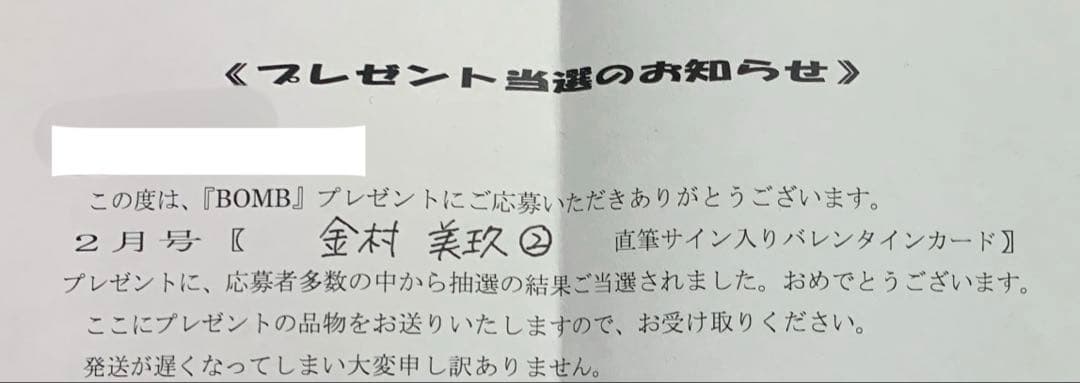 《プレゼント当選のお知らせ》
この度は、『BOMB』プレゼントにご応募いただきありがとうございます。
2月号〖 金村 美玖② 直筆サイン入りバレンタインカード〗
プレゼントに、応募者多数の中から抽選の結果ご当選されました。おめでとうございます。
ここにプレゼントの品物をお送りいたしますので、お受け取りください。
発送が遅くなってしまい大変申し訳ありません。